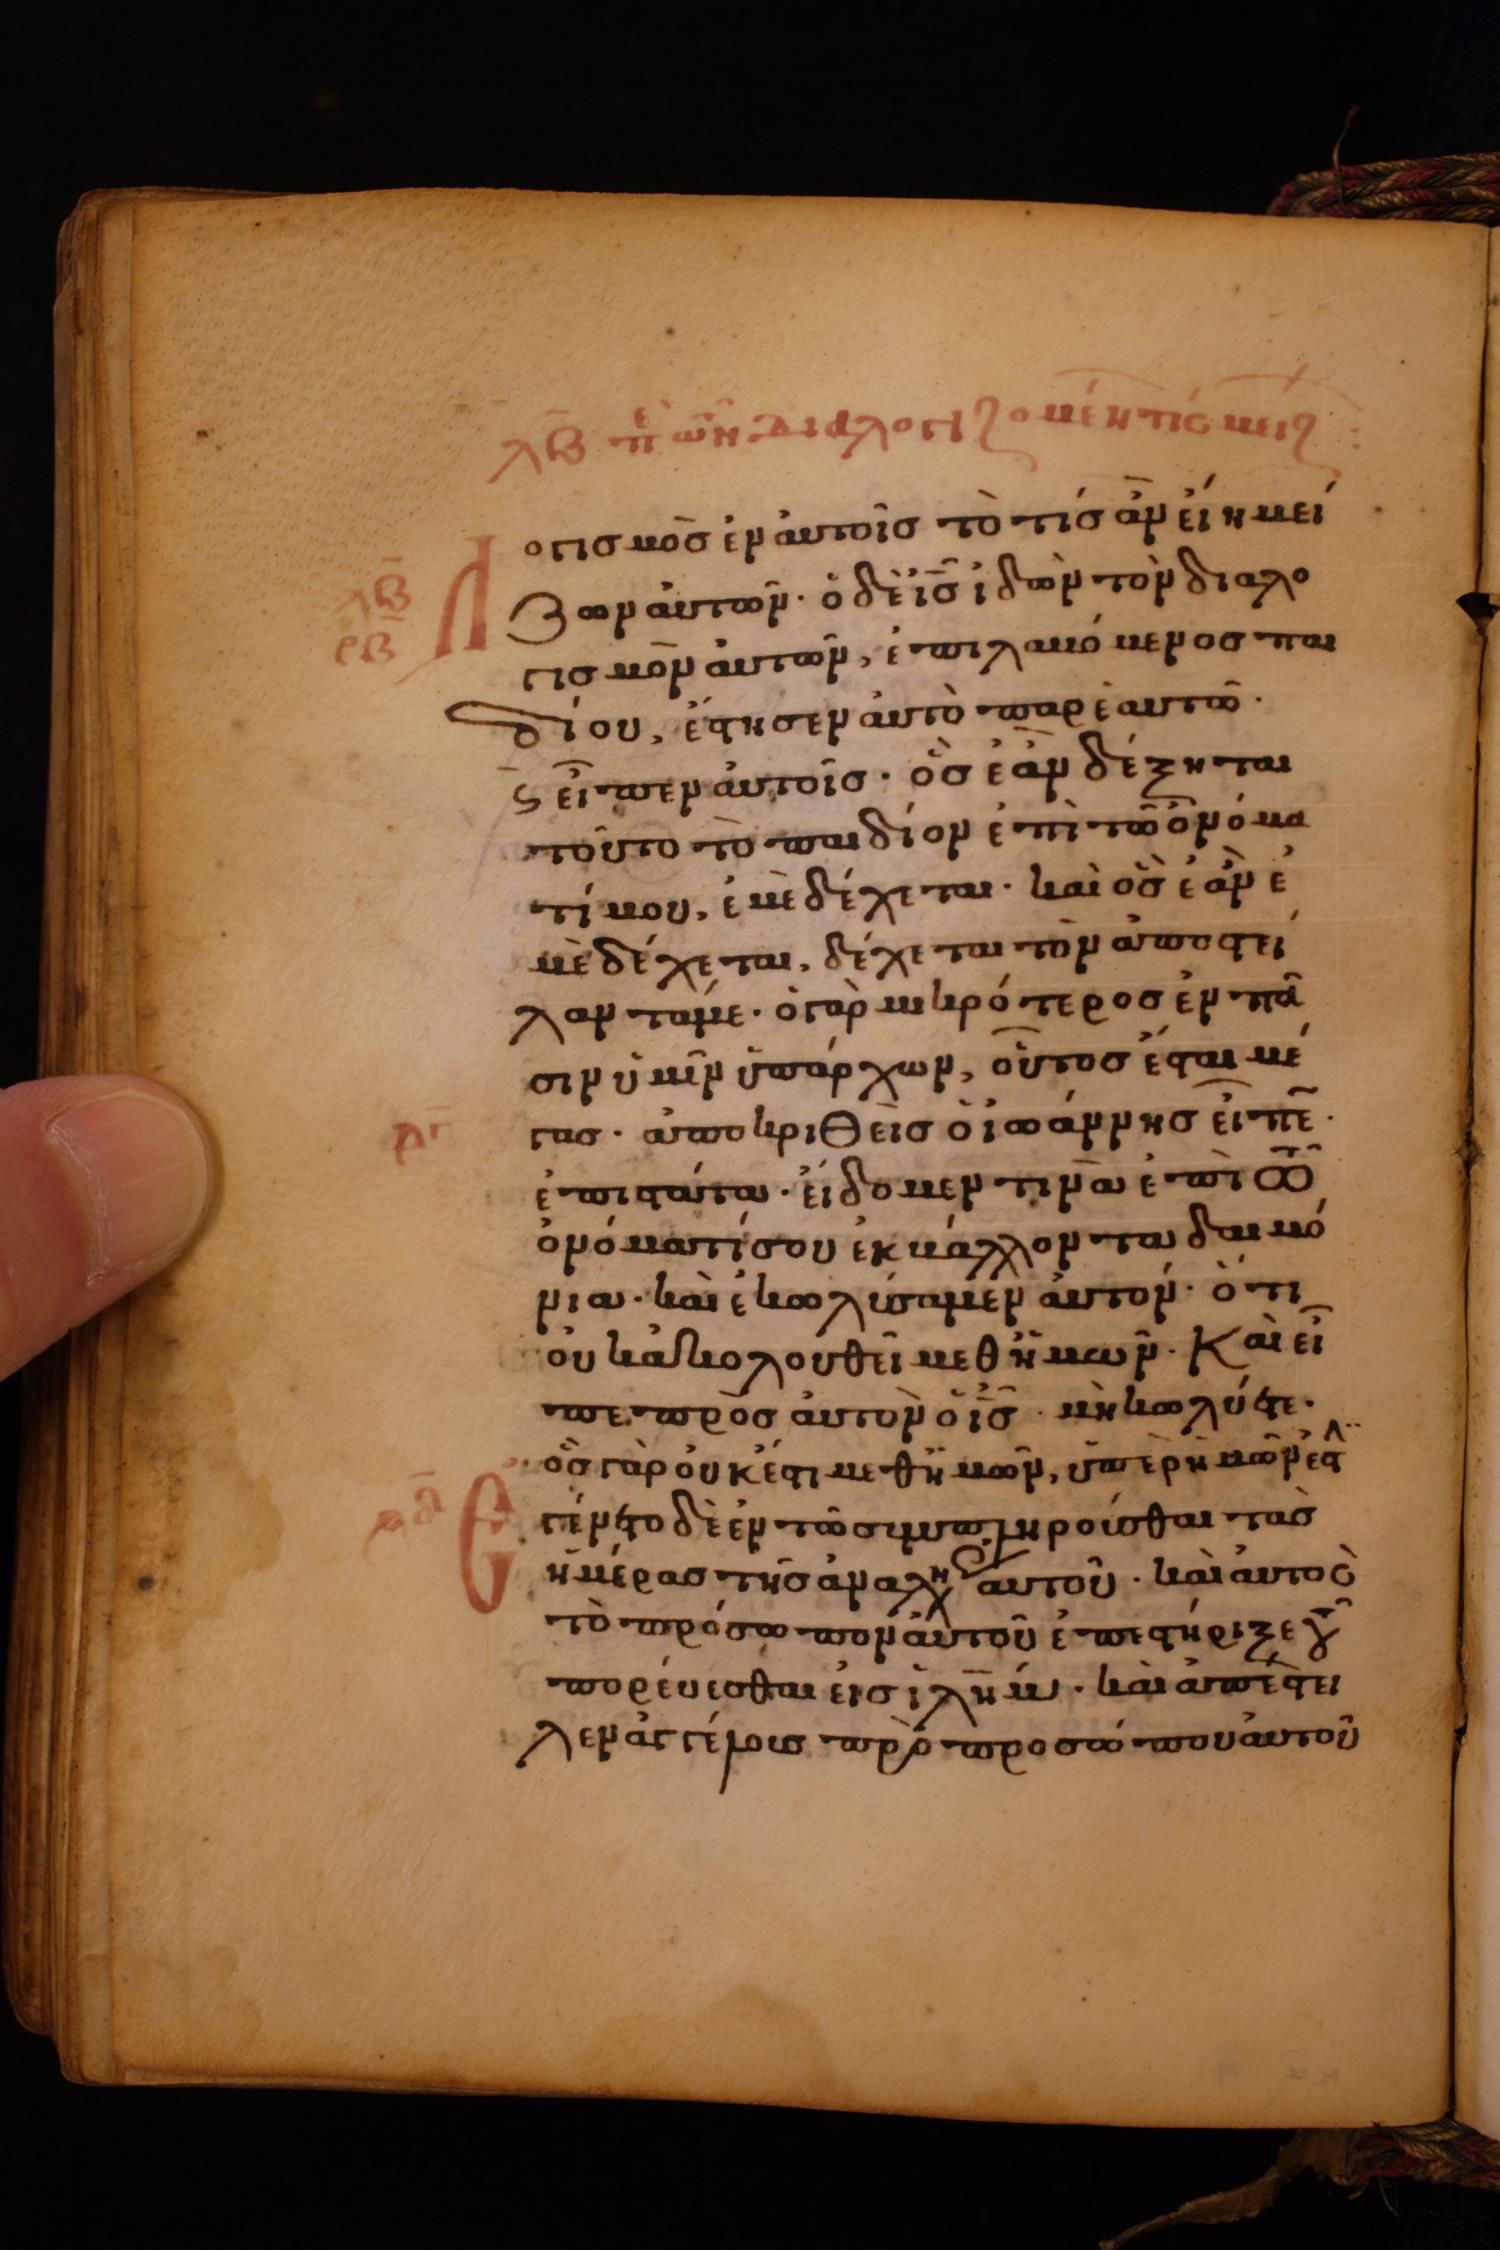 λβ πε των διαλογιζομένων τίς μείζ
ογισμὸς ἐν αὐτοῖς τὸ τίς ἂν εἴη μεί
λβ
ζων αὐτῶν· ὁ δὲ ις ἰδὼν τὸν διαλο
ρβ
γισμὸν αὐτῶν, ἐπιλαμόμενος παι
δίου, ἔστησεν αὐτὸ παρ' ἑαυτῶ·
ϛ εἶπεν αὐτοῖς· ὃς ἐὰν δέξηται
τοῦτο τὸ παιδίον ἐπὶ τῶ ὀνόμα
τί μου, ἐμὲ δέχεται· καὶ ὃς ἐὰν ἐ
μὲ δέχεται, δέχεται τὸν ἀποστεί
λαντά με· ὁ γὰρ μικρότερος ἐν πᾶ
σιν ὑμῖν ὑπάρχων, οὗτος ἔσται μέ
ργ
γας· ἀποκριθεὶς ὁ ἰωάννης εἶπε·
ἐπιστάτα· εἴδομέν τινα ἐπὶ τῶ
ὀνόματί σου ἐκβάλλοντα δαιμό
νια· καὶ ἐκωλύσαμεν αὐτόν· ὅτι
οὐκ ἀκολουθεῖ μεθ ἡμῶν· Καὶ εἶ
πε πρὸς αὐτὸν ὁ ις· μὴ κωλύετε·
ὃς γὰρ οὐκ ἔστι μεθ ἡμῶν, ὑπὲρ ἡμῶν ἐστ
ρδ
Ἐγένετο δὲ ἐν τῶ συμπληροῦσθαι τὰς
ἡμέρας τῆς ἀναλήψ αὐτοῦ· καὶ αὐτὸς
τὸ πρόσωπον αὐτοῦ ἐπεστήριξε τοῦ
πορεύεσθαι εἰς ιλημ· καὶ ἀπέστει
λεν ἀγγέλους πρὸ προσώπου αὐτοῦ